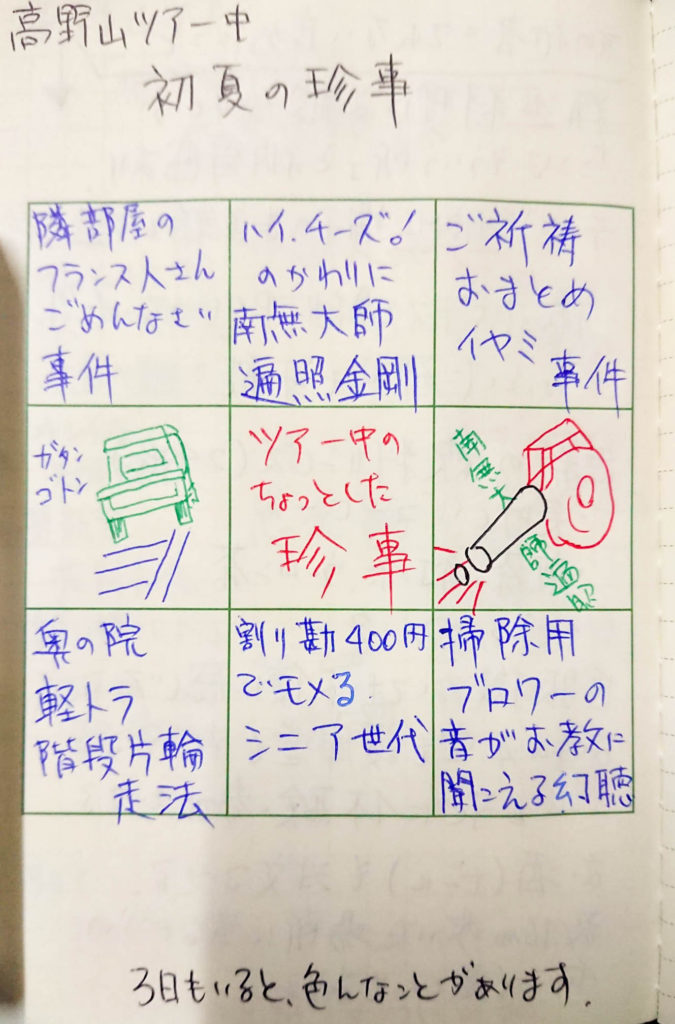 高野山ツアー中
初夏の珍事
隣部屋の
フランス人さん
ごめんなさい
事件
ハイ、チーズ!
のかわりに
南無大師
遍照金剛
ご祈祷
おまとめ
イヤミ
事件
ガタン
ゴトン
ツアー中の
ちょっとした
珍事
南無大
師遍照
奥の院
軽トラ
階段片輪
走法
割り勘400円
でモメる
シニア世代
掃除用
ブロワーの
音がお教に
聞こえる幻聴
3日もいると、色んなことがあります。